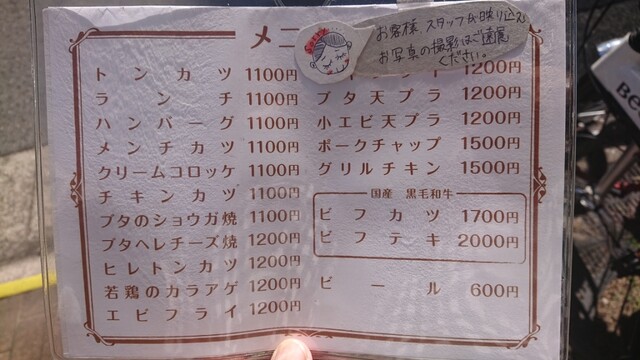 メニ
お客様 スタッフが映り込む
お写真の撮影はご遠慮
ください。
トンカツ 1100円
ランチ 1100円
ハンバーグ 1100円
メンチカツ 1100円
クリームコロッケ 1100円
チキンカツ 1100円
ブタのショウガ焼 1100円
ブタヘレチーズ焼 1200円
ヒレトンカツ 1200円
若鶏のカラアゲ 1200円
エビフライ 1200円
1200円
ブタ天プラ 1200円
小エビ天プラ 1200円
ポークチャップ 1500円
グリルチキン 1500円
国産 黒毛和牛
ビフカツ 1700円
ビフテキ 2000円
ビール 600円